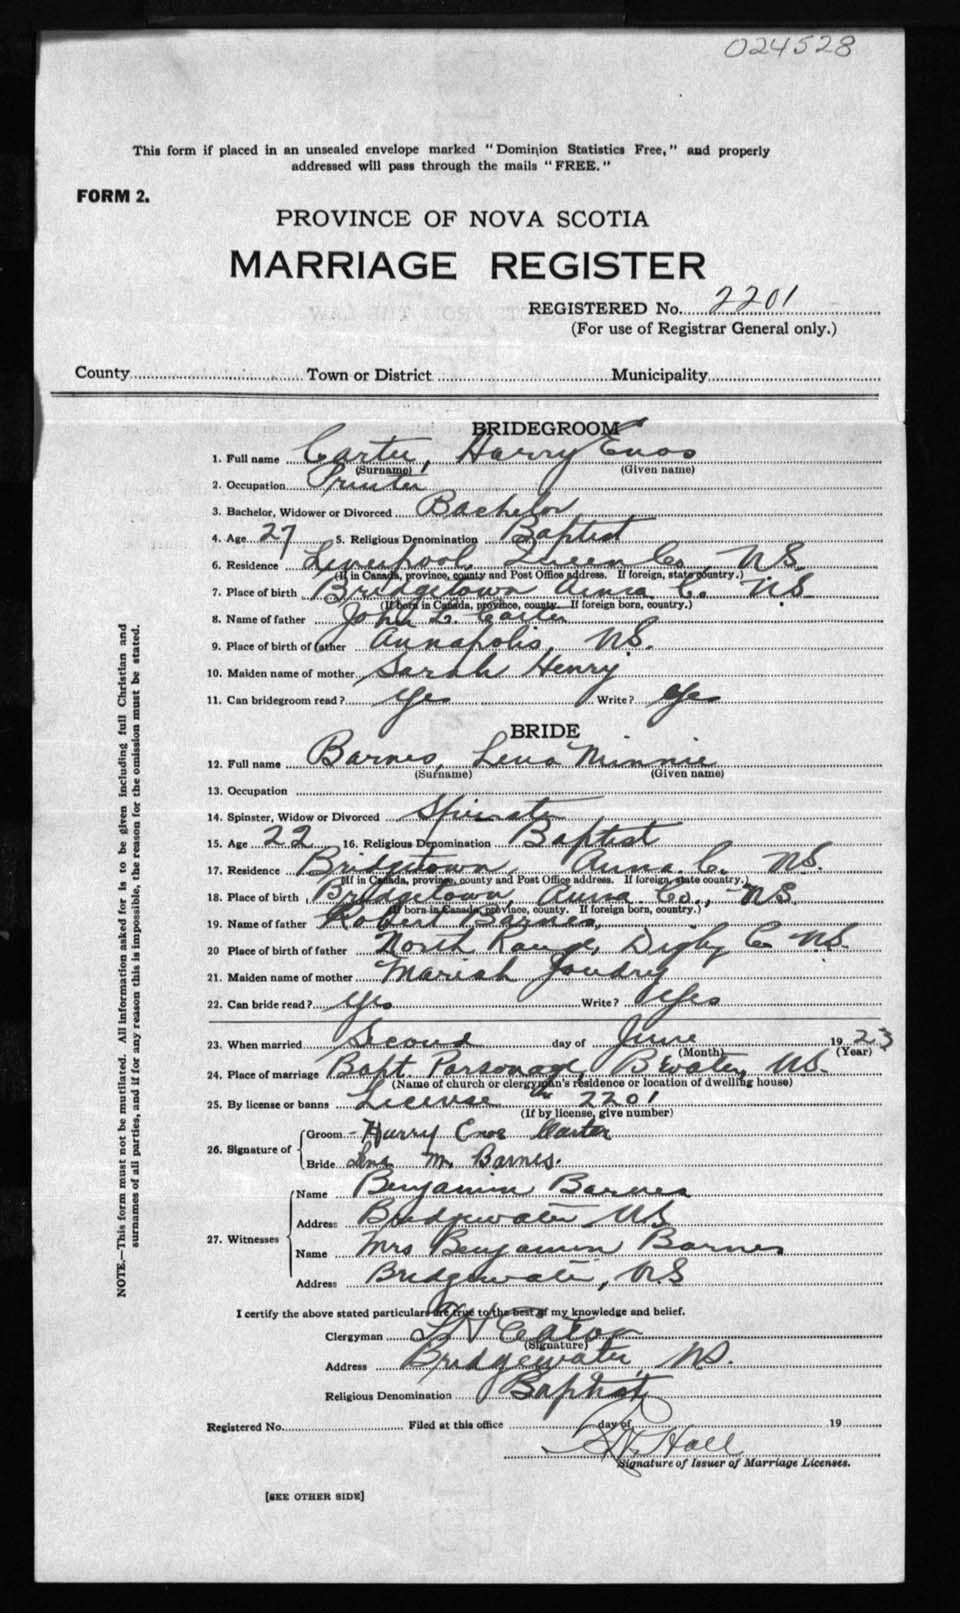 024528
This form if placed in an unsealed envelope marked "Dominion Statistics Free," and properly
addressed will pass through the mails "FREE."
FORM 2.
PROVINCE OF NOVA SCOTIA
MARRIAGE REGISTER
REGISTERED No. 2201
(For use of Registrar General only.)
County Town or District Municipality
BRIDEGROOM
1. Full name Carter, Harry Enos
(Surname) (Given name)
2. Occupation Printer
3. Bachelor, Widower or Divorced Bachelor
4. Age 27 5. Religious Denomination Baptist
6. Residence Liverpool, Queen Co, N.S.
(If in Canada, province, county and Post Office address. If foreign, state country.)
7. Place of birth Bridgetown Anna C. N.S.
(If born in Canada, province, county. If foreign born, country.)
8. Name of father John L. Carter
9. Place of birth of father Annapolis, N.S.
10. Maiden name of mother Sarah Henry
11. Can bridegroom read? Yes Write? Yes
BRIDE
12. Full name Barnes, Lena Minnie
(Surname) (Given name)
13. Occupation
14. Spinster, Widow or Divorced Spinster
15. Age 22 16. Religious Denomination Baptist
17. Residence Bridgetown, Anna C. N.S.
(If in Canada, province, county and Post Office address. If foreign, state country.)
18. Place of birth Bridgetown, Anna Co., N.S.
(If born in Canada, province, county. If foreign born, country.)
19. Name of father Robert Barnes,
20 Place of birth of father North Range, Digby Co N.S.
21. Maiden name of mother Mariah Joudry
22. Can bride read? Yes Write? Yes
23. When married Second day of June 1923
(Month) (Year)
24. Place of marriage Bapt. Parsonage, B'water, N.S.
(Name of church or clergyman's residence or location of dwelling house)
25. By license or banns License 2201
(If by license, give number)
26. Signature of Groom Harry Enos Carter
Bride Lena M. Barnes.
27. Witnesses Name Benjamin Barnes
Address Bridgewater NS
Name Mrs Benjamin Barnes
Address Bridgewater, N.S
I certify the above stated particulars are true to the best of my knowledge and belief.
Clergyman Eaton
(Signature)
Address Bridgewater, N.S.
Religious Denomination Baptist
Registered No. Filed at this office day of 19
Hall
Signature of Issuer of Marriage Licenses.
[SEE OTHER SIDE]
NOTE.—This form must not be mutilated. All information asked for is to be given including full Christian and
surnames of all parties, and if for any reason this is impossible, the reason for the omission must be stated.